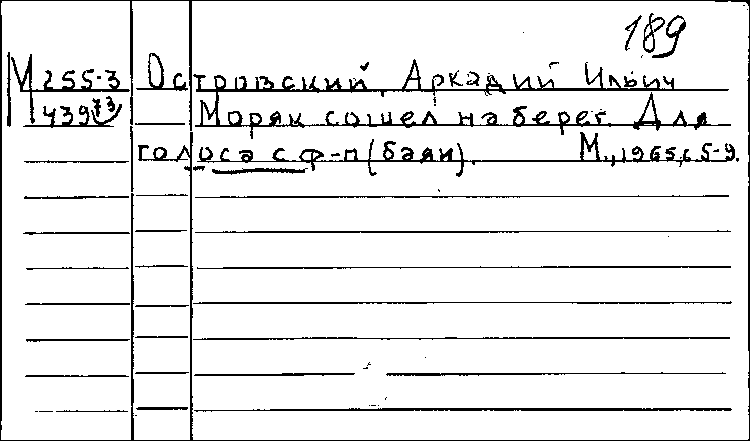 189
М 255-3 Островский, Аркадий Ильич
439 Моряк сошел на берег. Для
голоса с ф-п (баян). М., 1965, с 5-9.